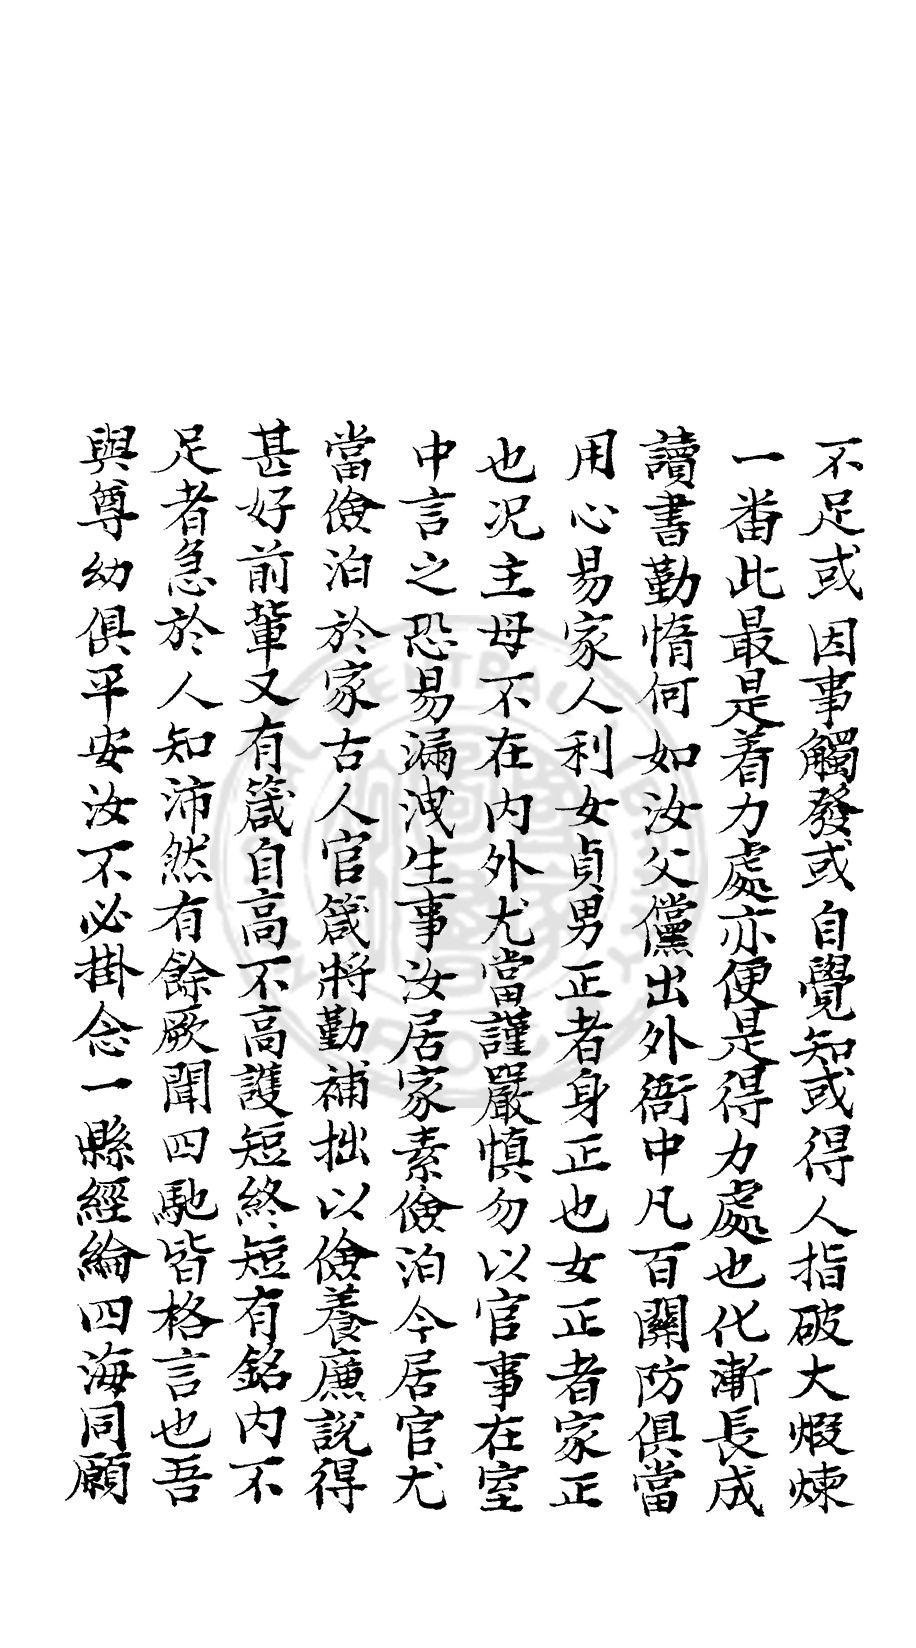 不足或因事觸發或自覺知或得人指破大煅煉
一畨此最是着力處亦便是得力處也化漸長成
讀書勤惰何如汝父儻出外衙中凡百關防俱當
用心易家人利女貞男正者身正也女正者家正
也况主母不在内外尤當謹嚴慎勿以官事在室
中言之恐易漏洩生事汝居家素儉泊今居官尤
當儉泊於家古人官箴將勤補拙以儉養廉說得
甚好前軰又有箴自高不高護短終短有銘内不
足者急於人知沛然有餘厥聞四馳皆格言也吾
與尊幼俱平安汝不必掛念一縣經綸四海同願